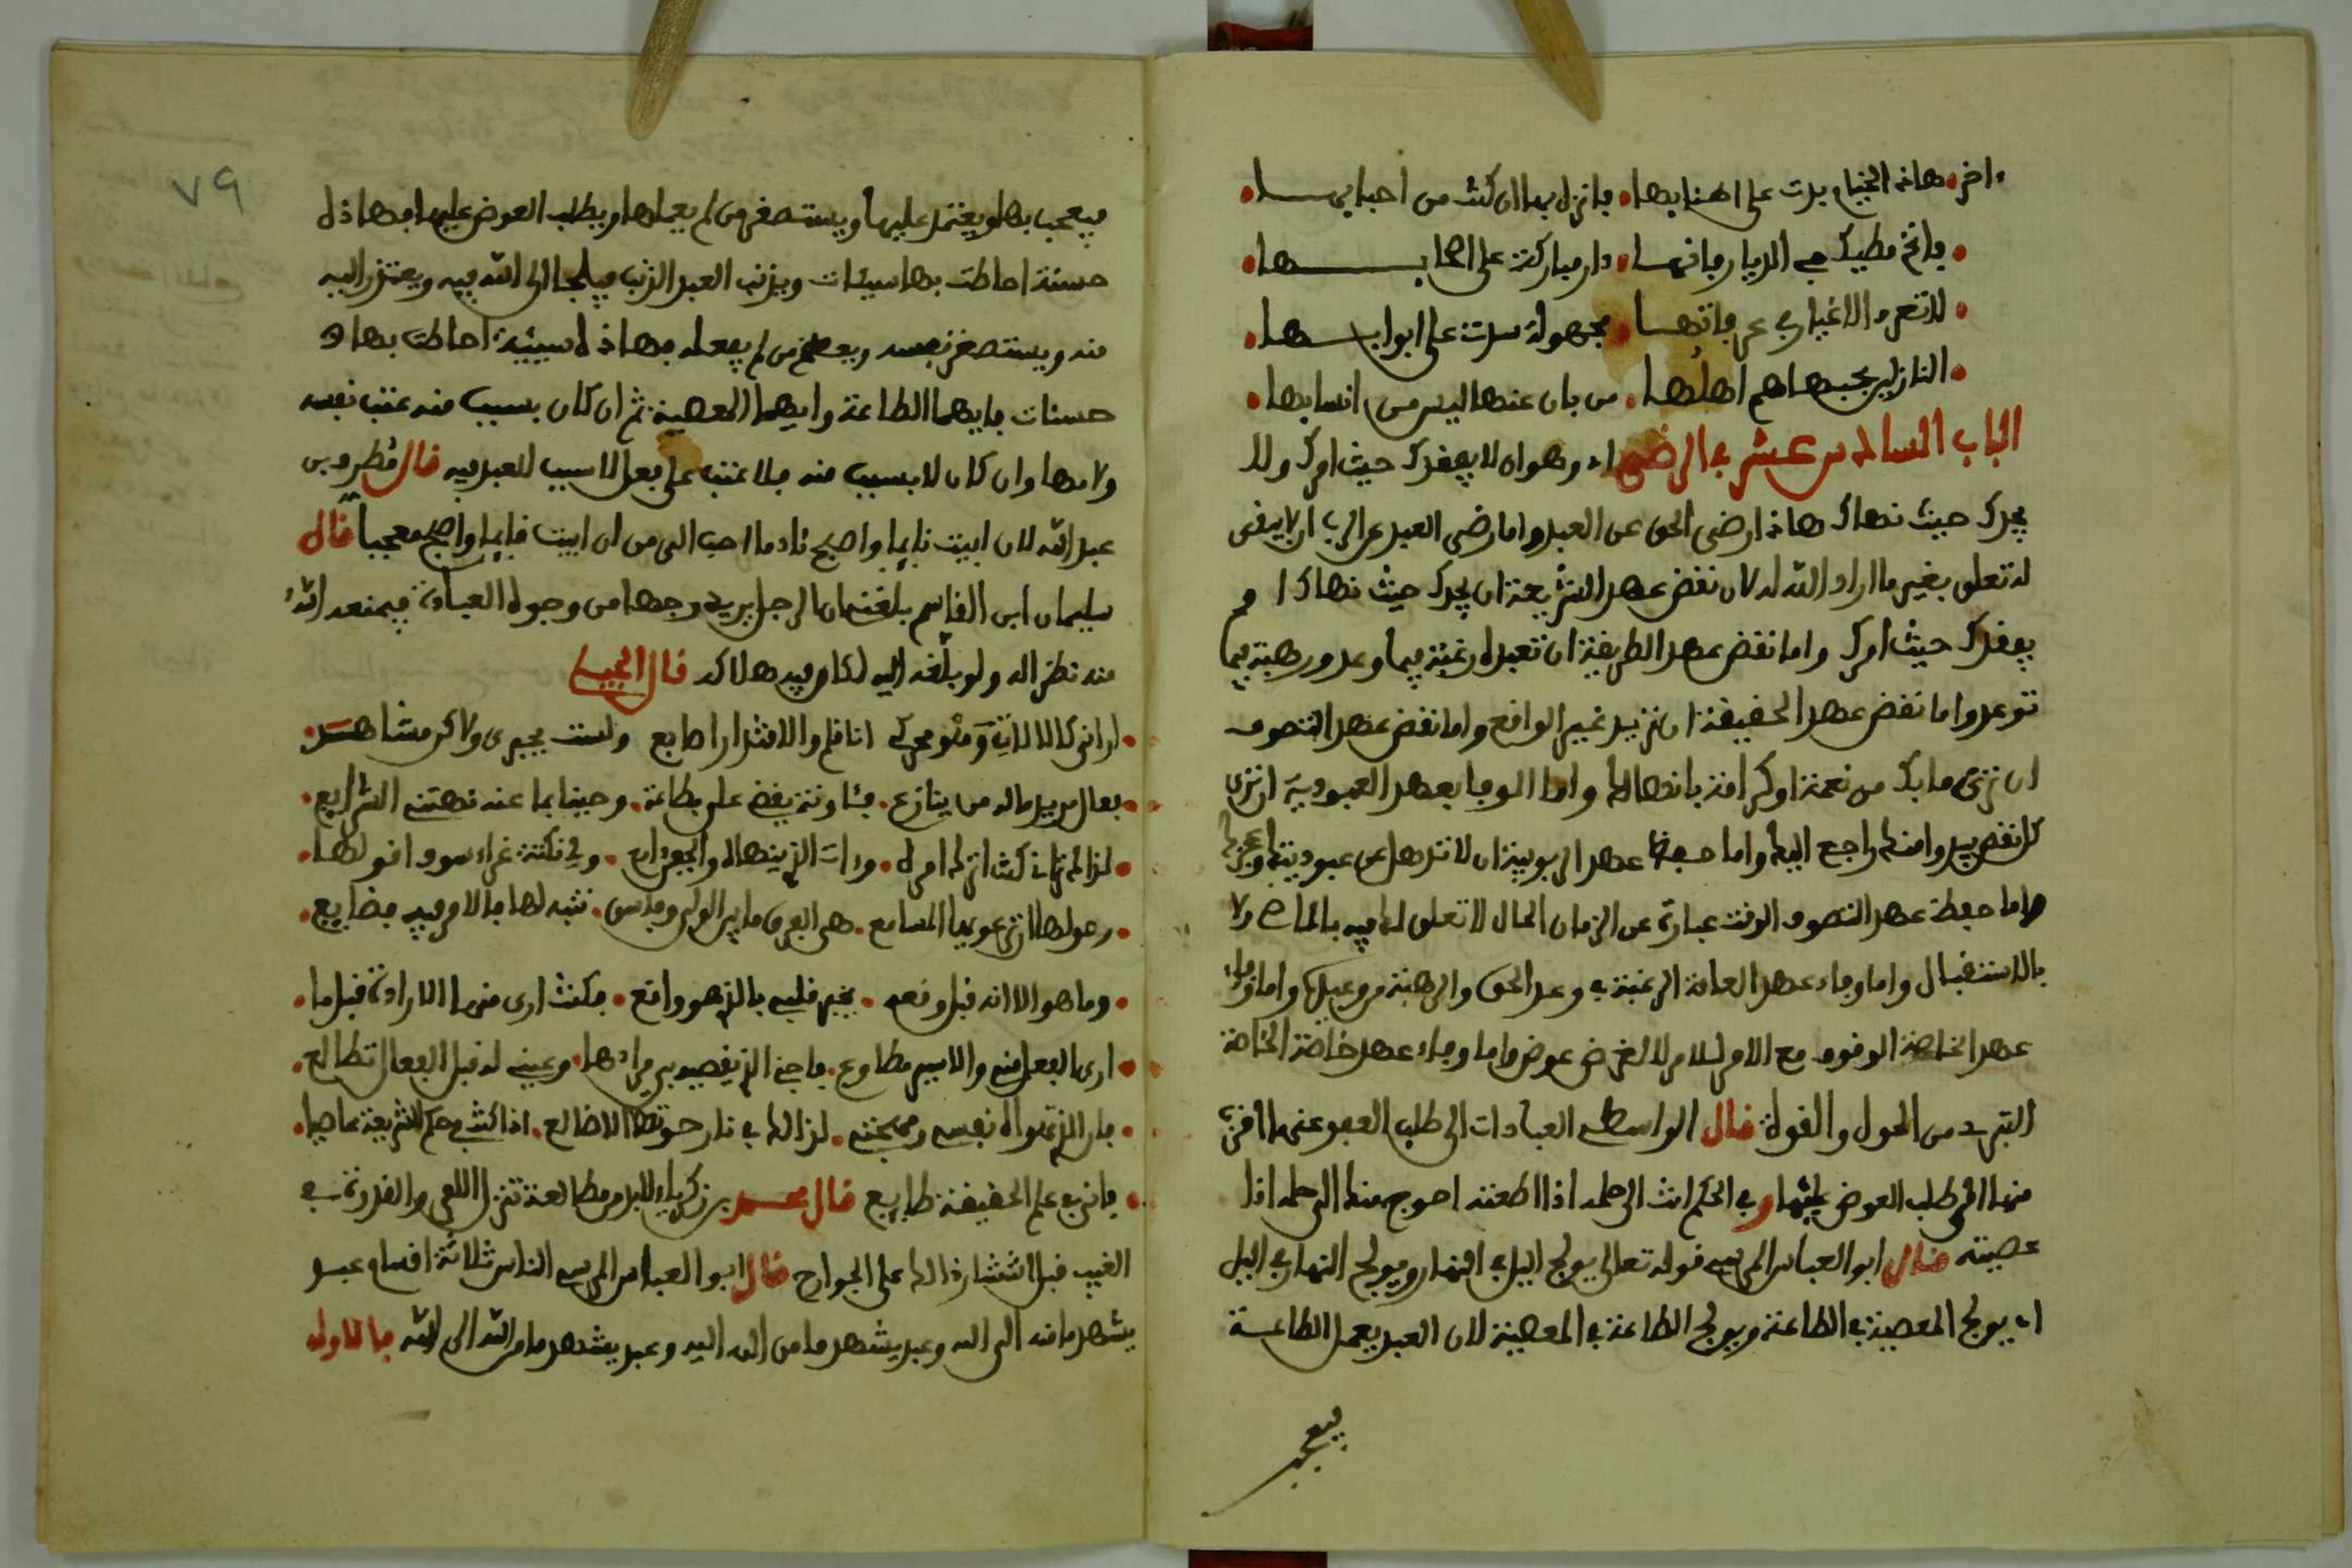 اخر هاذه الخيام بدت على اطنابها فانزل بها ان كنت من احبابها
فانخ مطيك في الديار فانها دار مباركة على اصحابها
لا تعرف الاغيار في عرفاتها مجهولة سدت على ابوابها
النازلين بحيها هم اهلها من بان عنها ليس من انسابها
الباب السادس عشر في الرضى وهو ان لا يفقدك حيث امرك ولا
يجدك حيث نهاك هاذا رضى الحق عن العبد واما رضى العبد عن الرب ان لا يبقى
له تعلق بغير ما اراد الله له لان نقض عهد الشريعة ان يجدك حيث نهاك او
يفقدك حيث امرك واما نقض عهد الطريقة ان تعبده رغبة فيما وعد ورهبة فيما
توعد واما نقض عهد الحقيقة ان تريد غير الواقع واما نقض عهد التصوف
ان ترى ما بك من نعمة او كرامة بانها لك واما الوفا بعهد العبودية ان ترى
كل نقص يبدو منك راجع اليك واما حفظ عهد الربوبية ان لا تذهل عن عبوديتك وعجزك
واما حفظ عهد التصوف الوقت عبارة عن الزمان الحال لا تعلق له فيه بالماضي ولا
بالاستقبال واما وفاء عهد العامة الرغبة في وعد الحق والرهبة من وعيده واما وفاء
عهد الخاصة الوقوف مع الامر للامر لا لغرض عوض واما وفاء عهد خاصة الخاصة
التبري من الحول والقوة قال الواسطي العبادات الى طلب العفو عنها اقرب
منها الى طلب العوض عليها وفي الحكم انت الى حلمه اذا اطعته احوج منك الى حلمه اذا
عصيته قال ابو العباس المرسي قوله تعالى يولج اليل في النهار ويولج النهار في اليل
اي يولج المعصية في الطاعة ويولج الطاعة في المعصية لان العبد يعمل الطاعة
فيعجب
٧٩
فيعجب بها ويعتمد عليها ويستصغر من لم يعملها ويطلب العوض عليها فهاذه
حسنة احاطت بها سيئات ويذنب العبد الذنب فيلجا الى الله فيه ويعتذر اليه
منه ويستصغر نفسه ويعظم من لم يفعله فهاذه سيئة احاطت بها
حسنات فايهما الطاعة وايهما المعصية ثم ان كان بسبب منه عتب نفسه
ولامها وان كان لا بسبب منه فلا عتب على فعل لا سبب للعبد فيه قال مطرف بن
عبد الله لان ابيت نايما واصبح نادما احب الى من ان ابيت قايما واصبح معجبا قال
سليمان ابن القاسم بلغنى ان الرجل يريد وجها من وجوه العبادة فيمنعه الله
منه نظرا له ولو بلغه اليه لكان فيه هلاكه قال الجيلي
اراني كالالات وهو محركي انا قلم والاقتدار اصابع ولست بجبري ولاكن مشاهد
فعال مريد ماله من ينازع فئاونة يقضي على بطاعة وحينا بما عنه نهتنه الشرايع
لذاك تراني كنت اترك امره وءات الذي ينهاه والجفن دامع ولي نكتة غراء سوف اقولها
وحق لها ان ترعويها المسامع هي الفرق ما بين الولي وفاسق تنبه لها فالامر فيه فضايع
وما هو الا انه قبل وقعه يخبر قلبي بالذي هو واقع فكنت ارى منها الارادة قبل ما
ارى الفعل مني والاسير مطاوع فاجني الذي يقضيه في مرادها وعيني له قبل الفعال تطالع
... لذاك في نار حوتها الاضالع اذا كنت في حكم الشريعة عاصيا
فاني في علم الحقيقة طايع قال محمد بن زكرياء لابد من مطالعة تنزل القى والقدرة في
الغيب قبل انتشارها لها على الجوارح قال ابو العباس المرسي الناس ثلاثة اقسام عبد
يشهد ما منه الى الله وعبد يشهد ما من الله اليه وعبد يشهد ما من الله الى الله فالاول